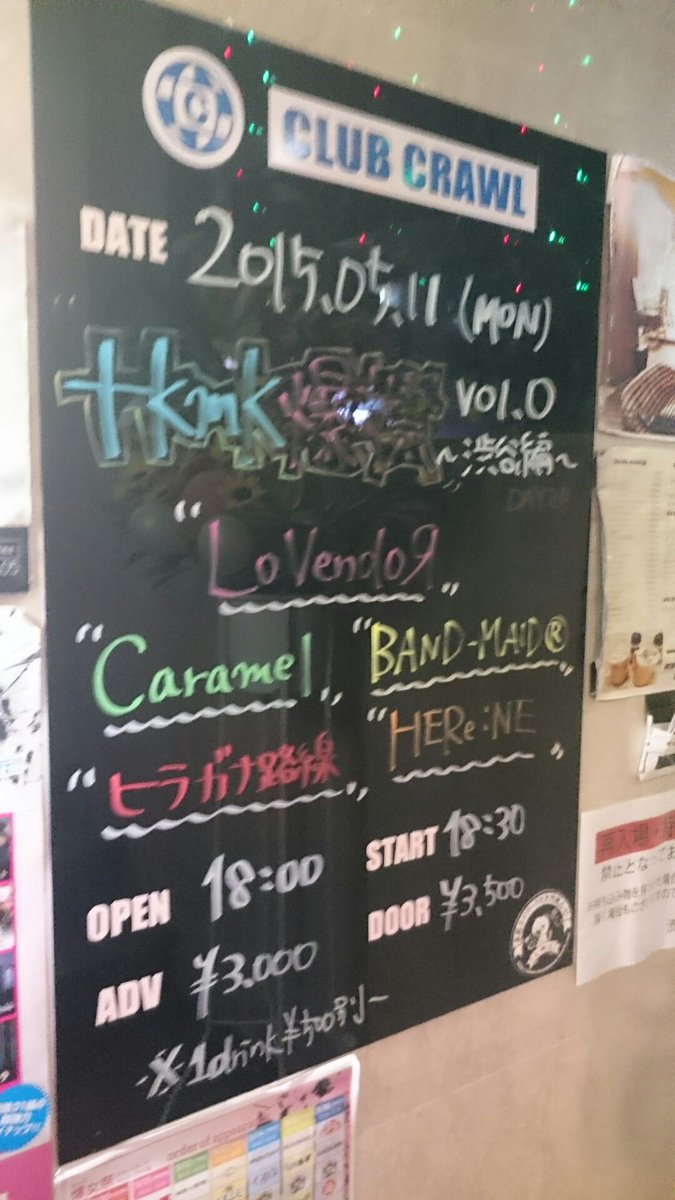 CLUB CRAWL
DATE 2015.05.11 (MON)
"tkmk vol.0
~渋谷編~
"LoVendoЯ"
"Caramel" "BAND-MAID®"
"ヒラガナ路線" "HERe:NE"
OPEN 18:00 START 18:30
ADV ¥3.000 DOOR ¥3,500
※1drink ¥500別
再入場・
禁止となってま
order of appearance